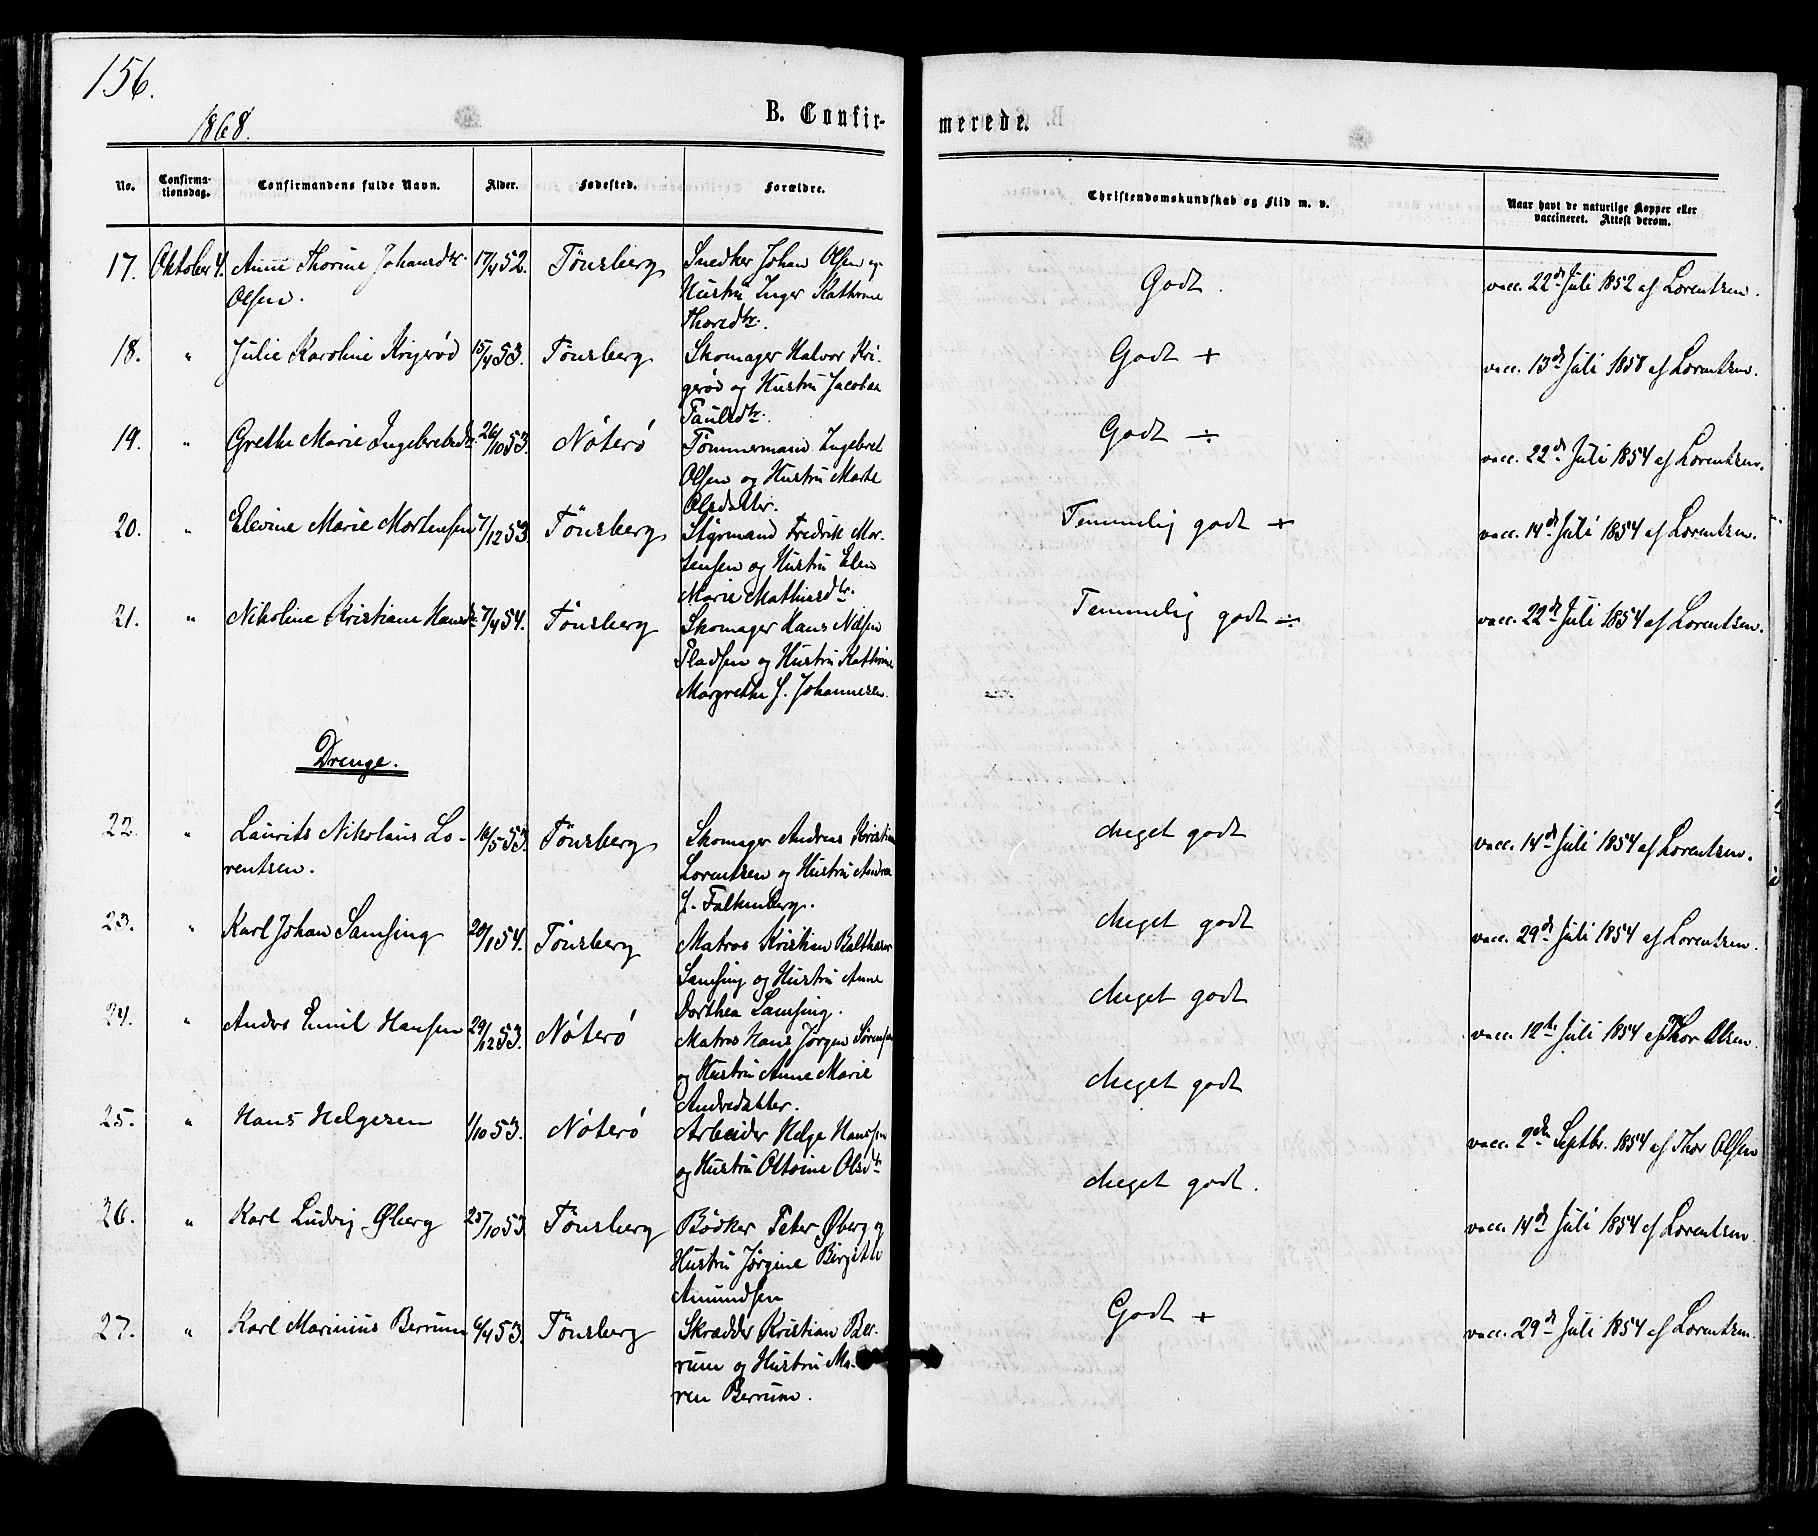 156.
1868.
B. Confir-
merede.
No.
Confirma-
tionsdag.
Confirmandens fulde Navn.
Alder.
Fødested.
Forældre.
Christendomskundskab og Flid m. v.
Naar havt de naturlige Kopper eller
vaccineret. Attest derom.
17. Oktober 4. Anne Thorine Johansdtr. 17/4 52. Tönsberg Snedker Johan Olsen og Godt. vacc. 22de Juli 1852 af Lorentsen.
Olsen. Hustru Inger Kathrine
Thoredtr.
18. " Julie Karoline Krigerød 15/4 53. Tönsberg Skomager Halvor Kri- Godt + vacc. 13de Juli 1858 af Lorentsen.
gerød og Hustru Jacobea
Paulsdtr.
19. " Grethe Marie Ingebretsdtr. 26/10 53. Nöterö Tömmermand Ingebret Godt ÷ vacc. 22de Juli 1854 af Lorentsen.
Olsen og Hustru Marte
Olsdatter.
20. " Elevine Marie Mortensen 7/12 53. Tönsberg Styrmand Fredrik Mor- Temmelig godt + vacc. 14de Juli 1854 af Lorentsen.
tensen og Hustru Elen
Marie Mathisdtr.
21. " Nikoline Kristiane Hansdtr. 7/4 54. Tönsberg Skomager Hans Nilsen Temmelig godt ÷ vacc. 22de Juli 1854 af Lorentsen.
Pladsen og Hustru Kathrine
Margrethe f. Johannesen.
Drenge.
22. " Laurits Nikolaus Lo- 16/5 53. Tönsberg Skomager Andreas Kristian Meget godt vacc. 14de Juli 1854 af Lorentsen.
rentsen. Lorentsen og Hustru Andrea
f. Falkenberg.
23. " Karl Johan Samsing 20/1 54. Tönsberg Matros Kristian Balthasar Meget godt vacc. 29de Juli 1854 af Lorentsen.
Samsing og Hustru Anne
Dorthea Samsing.
24. " Anders Emil Hansen 29/12 53. Nöterö Matros Hans Jørgen Sørensen Meget godt vacc. 12te Juli 1854 af Thor Olsen
og Hustru Anne Marie
Andredatter.
25. " Hans Helgesen 1/10 53. Nöterö Arbeider Helge Hanssen Meget godt vacc. 2den Septbr. 1854 af Thor Olsen
og Hustru Oltvine Olsdtr
26. " Karl Ludvig Øberg 25/10 53. Tönsberg Bödker Peter Øberg og Meget godt. vacc. 14de Juli 1854 af Lorentsen
Hustru Jørgine Birgitte
Amundsen
27. " Karl Marinius Berrum 6/4 53. Tönsberg Skrædder Kristian Ber- Godt + vacc. 29de Juli 1854 af Lorentsen.
rum og Hustru Ma-
ren Berrum.